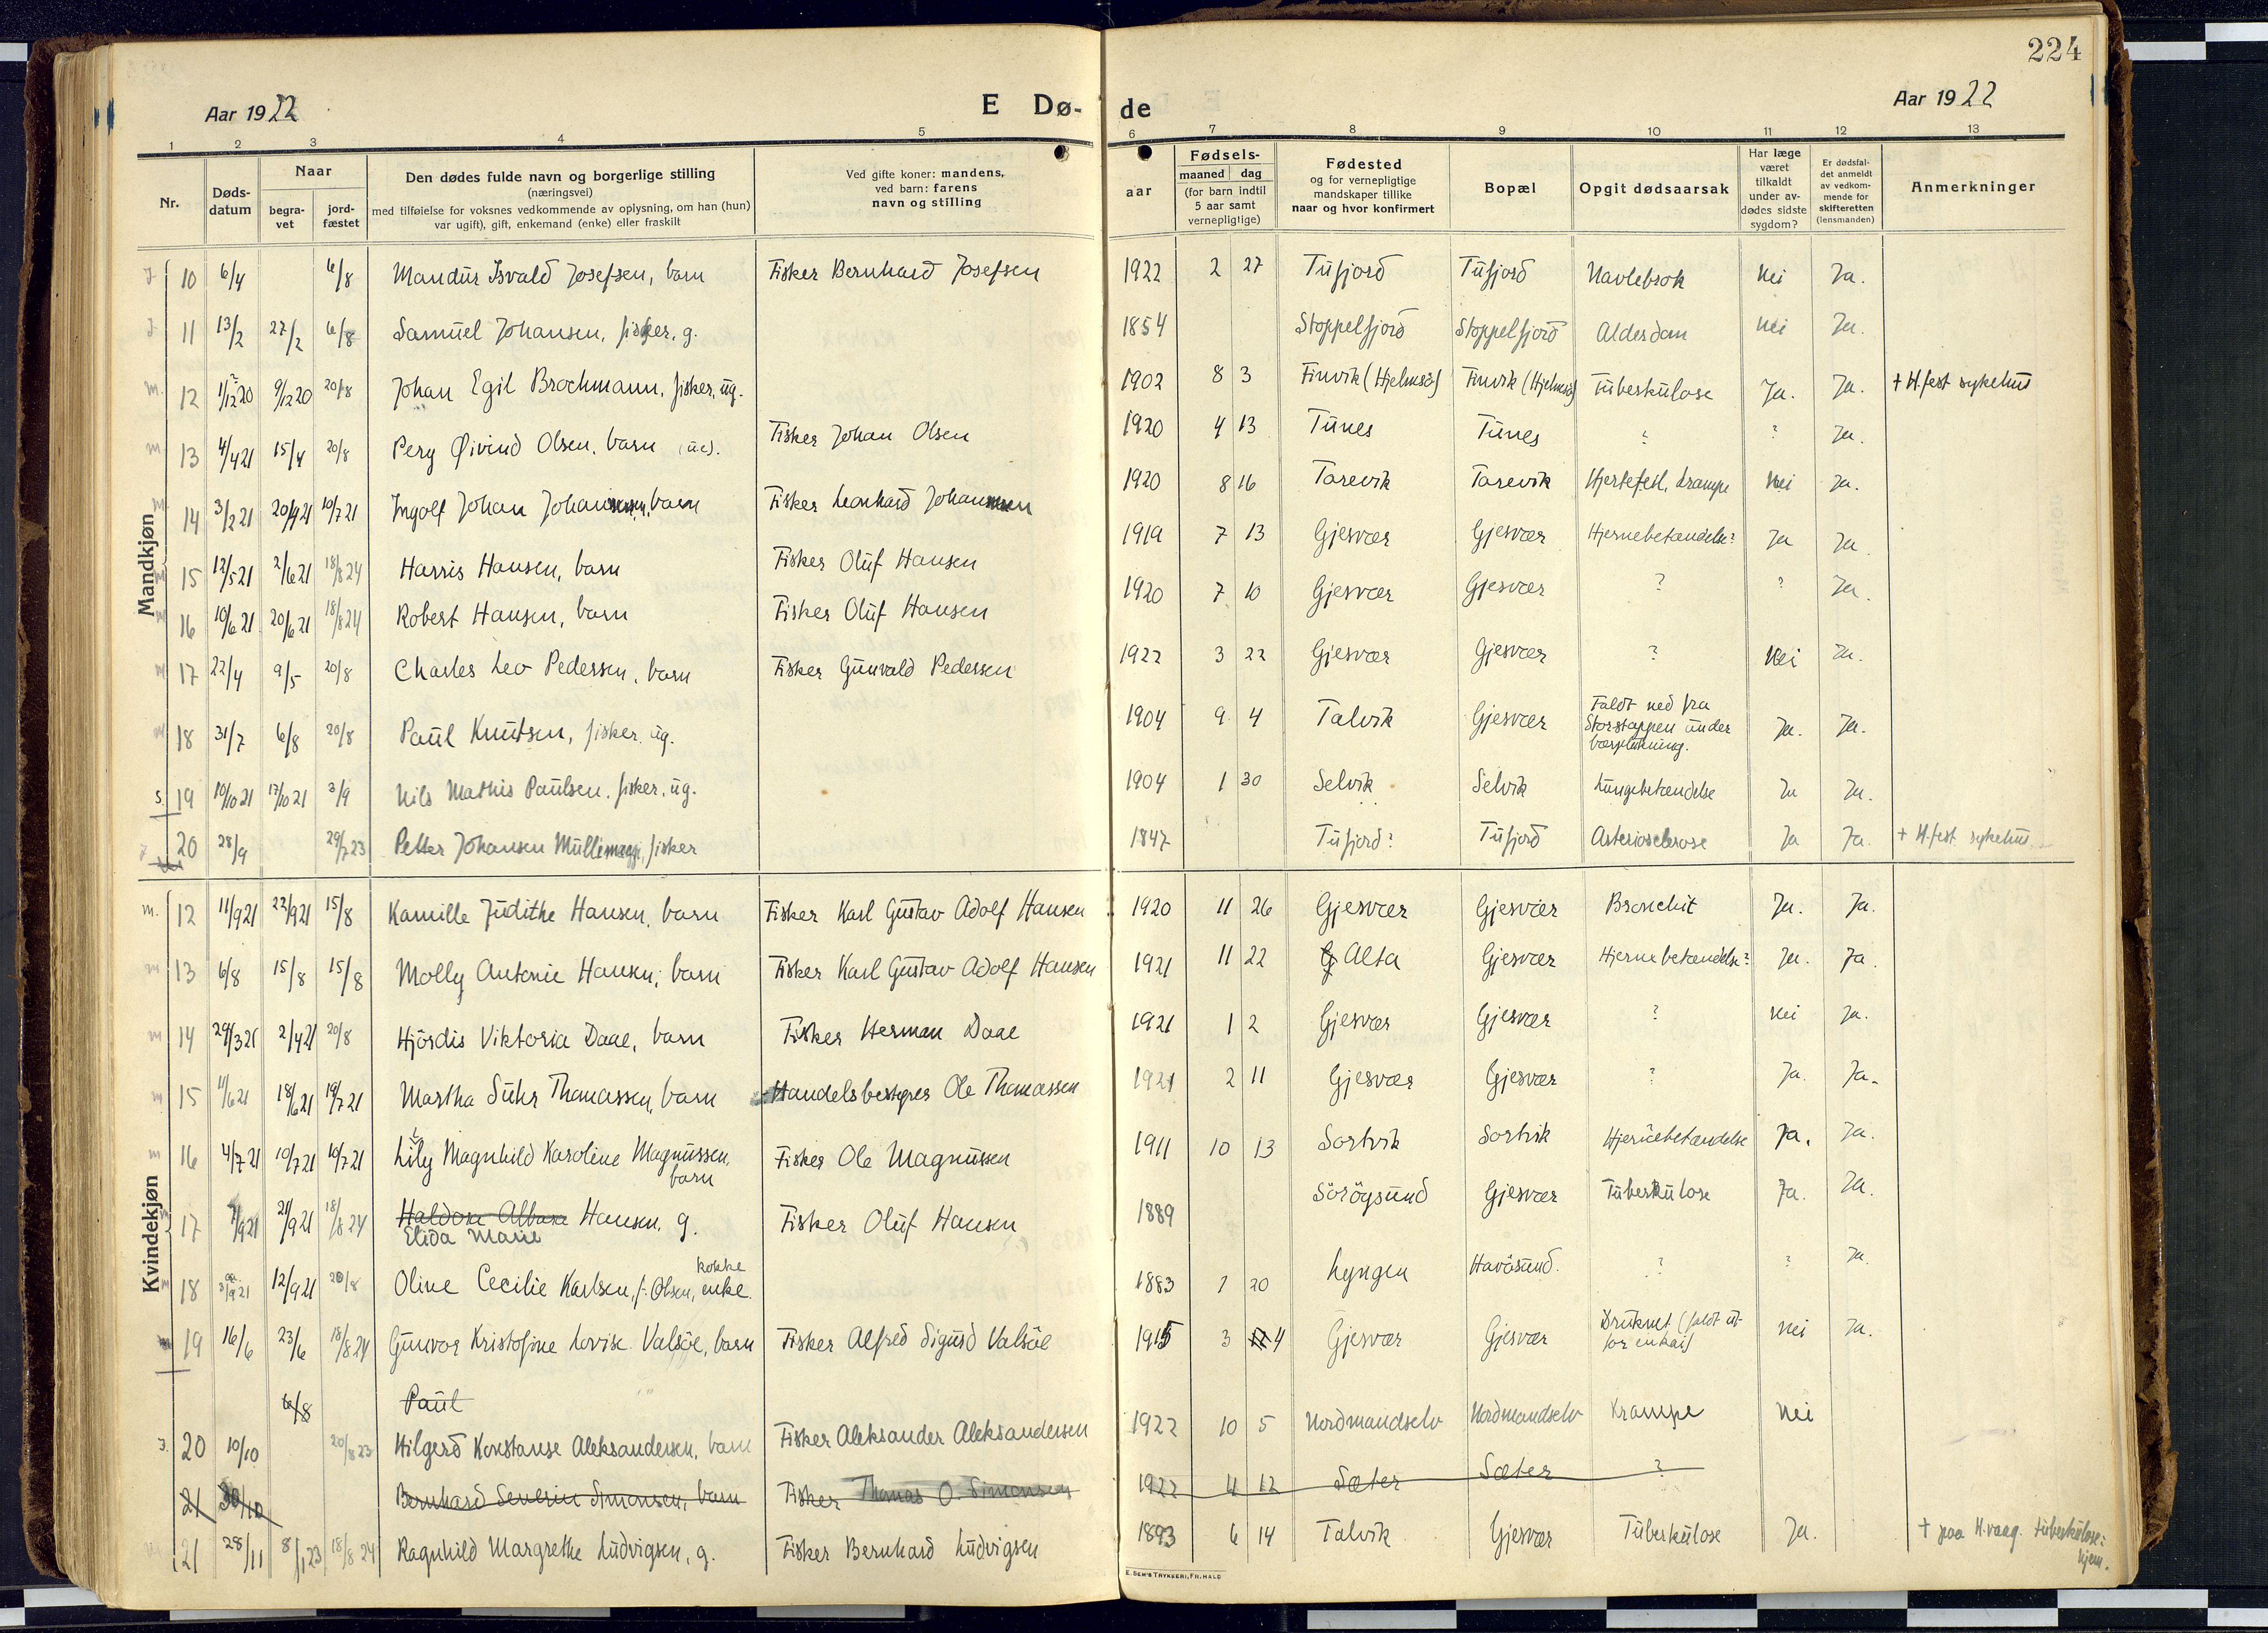 224
Aar 1922
E Dø-
de
Aar 1922
1 2 3 4 5 6 7 8 9 10 11 12 13
Nr.
Døds-
datum
Naar
begra-
vet
jord-
fæstet
Den dødes fulde navn og borgerlige stilling
(næringsvei)
med tilføielse for voksnes vedkommende av oplysning, om han (hun)
var ugift), gift, enkemand (enke) eller fraskilt
Ved gifte koner: mandens,
ved barn: farens
navn og stilling
aar
Fødsels-
maaned dag
(for barn indtil
5 aar samt
vernepligtige)
Fødested
og for vernepligtige
mandskaper tillike
naar og hvor konfirmert
Bopæl
Opgit dødsaarsak
Har læge
været
tilkaldt
under av-
dødes sidste
sygdom?
Er dødsfal-
det anmeldt
av vedkom-
mende for
skifteretten
(lensmanden)
Anmerkninger
Mandkjøn
10 6/4 6/8 Mandur Isvald Josefsen, barn Fisker Bernhard Josefsen 1922 2 27 Tufjord Tufjord Navlebrok Nei Ja.
11 13/2 27/2 6/8 Samuel Johansen, fisker, g. 1854 Stoppelfjord Stoppelfjord Alderdom Nei Ja.
m. 12 1/12 20 9/12 20 20/8 Johan Egil Brochmann, fisker, ug. 1902 8 3 Finvik (Hjelmsö) Finvik (Hjelmsö) Tuberkulose Ja. Ja. + H.fest sykehus
m 13 4/4 21 15/4 20/8 Pery Øivind Olsen, barn (ue). Fisker Johan Olsen 1920 4 13 Tunes Tunes ? ? Ja.
m 14 3/2 21 20/4 21 10/7 21 Ingolf Johan Johannesen, barn Fisker Leonhard Johannesen 1920 8 16 Tarevik Tarevik Hjertefeil, krampe Nei Ja.
m 15 12/5 21 2/6 21 18/8 24 Harris Hansen, barn Fisker Oluf Hansen 1919 7 13 Gjesvær Gjesvær Hjernebetændelse? Ja Ja.
m 16 10/6 21 20/6 21 18/8 24 Robert Hansen, barn Fisker Oluf Hansen 1920 7 10 Gjesvær Gjesvær ? ? Ja.
m 17 22/4 9/5 20/8 Charles Leo Pedersen, barn Fisker Gunvald Pedersen 1922 3 22 Gjesvær Gjesvær ? Nei Ja.
m 18 31/7 6/8 20/8 Paul Knutsen, fisker, ug. 1904 9 4 Talvik Gjesvær Faldt ned fra
Storstappen under
bærplukning. Ja. Ja.
s. 19 10/10 21 17/10 21 3/9 Nils Mathis Paulsen, fisker, ug. 1904 1 30 Selvik Selvik Lungebetændelse Ja Ja.
20 28/9 29/7 23 Petter Johansen fisker 1847 Tufjord? Tufjord Arteriosclerose Ja Ja. + H.fest sykehus
Kvindekjøn
m. 12 11/9 21 22/9 21 15/8 Kamille Judithe Hansen, barn Fisker Karl Gustav Adolf Hansen 1920 11 26 Gjesvær Gjesvær Bronchit Ja. Ja.
m 13 6/8 15/8 15/8 Molly Antonie Hansen, barn Fisker Karl Gustav Adolf Hansen 1921 11 22 G Alta Gjesvær Hjernebetændelse? Ja. Ja.
m 14 29/3 21 2/4 21 20/8 Hjördis Viktoria Daae, barn Fisker Herman Daae 1921 1 2 Gjesvær Gjesvær ? Nei Ja.
m 15 11/6 21 18/6 21 19/7 21 Martha Suhr Thomassen, barn Handelsbestyrer Ole Thomassen 1921 2 11 Gjesvær Gjesvær ? Ja. Ja.
m 16 4/7 21 10/7 21 10/7 21 Lily Magnhild Karoline Magnussen,
barn Fisker Ole Magnussen 1911 10 13 Sortvik Sortvik Hjernebetændelse Ja. Ja.
m 17 21/9 21 18/8 24 Haldora Albara Hansen, g. Fisker Oluf Hansen 1889 Sörögsund Gjesvær Tuberkulose Ja. Ja.
Elida Marie
kokke
m 18 12/9 21 20/8 Oline Cecilie Karlsen, f. Olsen, enke. 1883 1 20 Lyngen Havösund. ? ? Ja.
m 19 16/6 23/6 18/8 24 Gunvor Kristofine Lovise Valsöe, barn Fisker Alfred Sigurd Valsöe 1915 3 4 Gjesvær Gjesvær Druknet (faldt ut-
for en kai) Nei Ja.
6/8 Paul
20 10/10 20/8 23 Hilgerd Konstanse Aleksandersen, barn Fisker Aleksander Aleksandersen 1922 10 5 Nordmandselv Nordmandselv Krampe Nei
21 30/10 Bernhard Severin Simonsen, barn Fisker Thomas O. Simonsen 1922 4 12 Sæter Sæter ?
m 21 28/11 8/1 23 18/8 24 Ragnhild Margrethe Ludvigsen, g. Fisker Bernhard Ludvigsen 1893 6 14 Talvik Gjesvær Tuberkulose Ja. + paa H.vaag. tuberkulose-
hjem.
E. SEM'S TRYKKERI, FR.HALD